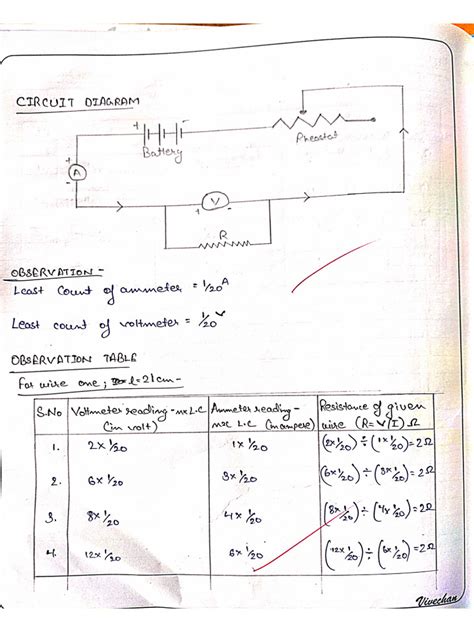 CIRCUIT DIAGRAM
+ -
Battery
Rheostat
+
A
-
+ V -
R
OBSERVATION -
Least Count of ammeter = 1/20 A
Least count of voltmeter = 1/20 V
OBSERVATION TABLE
For wire one; l=21cm-
S.No Voltmeter reading - n×L.C (in volt) Ammeter reading - n×L.C (in ampere) Resistance of given wire (R=V/I) Ω
1. 2×1/20 1×1/20 (2×1/20) ÷ (1×1/20) = 2Ω
2. 6×1/20 3×1/20 (6×1/20) ÷ (3×1/20) = 2Ω
3. 8×1/20 4×1/20 (8×1/20) ÷ (4×1/20) = 2Ω
4. 12×1/20 6×1/20 (12×1/20) ÷ (6×1/20) = 2Ω
Vivechan